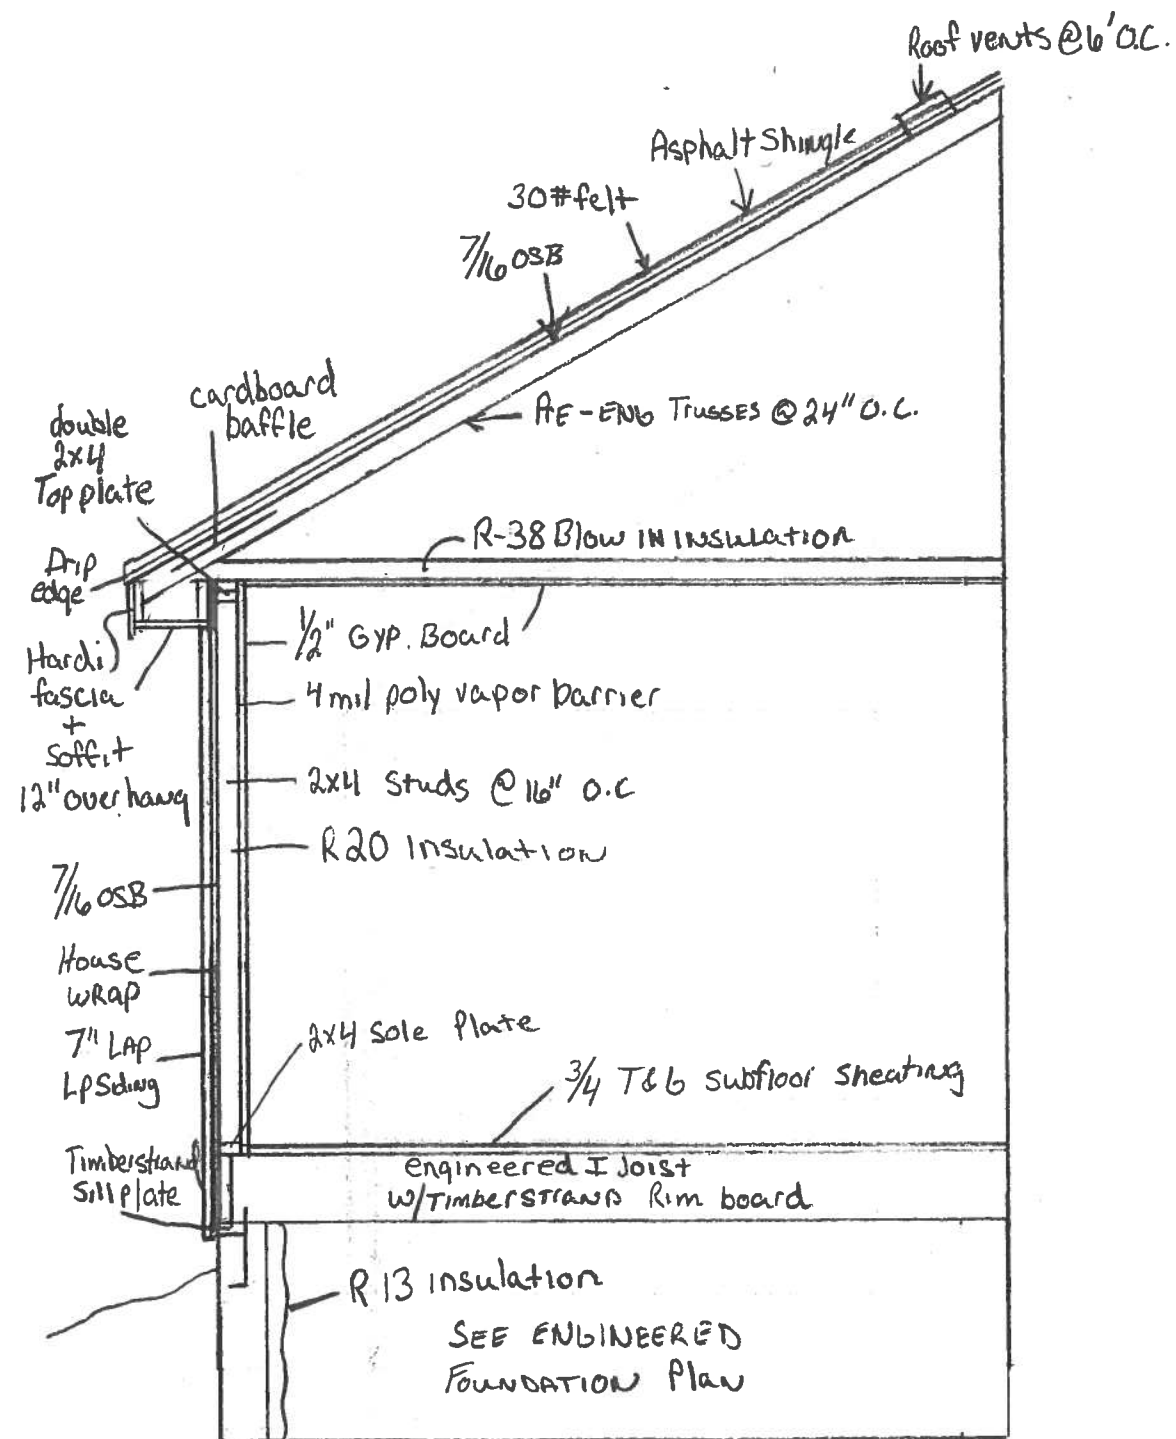 Roof vents @ 6' O.C.
Asphalt Shingle
30# felt
7/16 OSB
cardboard
baffle
double
2x4
Top plate
AE-ENG Trusses @ 24" O.C.
R-38 Blow IN INSULATION
Drip
edge
1/2" GYP. Board
Hardi
fascia
+
Soffit
12" overhang
4 mil poly vapor barrier
2x4 Studs @ 16" O.C
R20 Insulation
7/16 OSB
House
WRAP
2x4 Sole Plate
7" LAP
LP Siding
3/4 T&G Subfloor Sheating
Timberstrand
Sill plate
engineered I Joist
W/TIMBERSTRAND Rim board
R 13 insulation
SEE ENGINEERED
FOUNDATION Plan